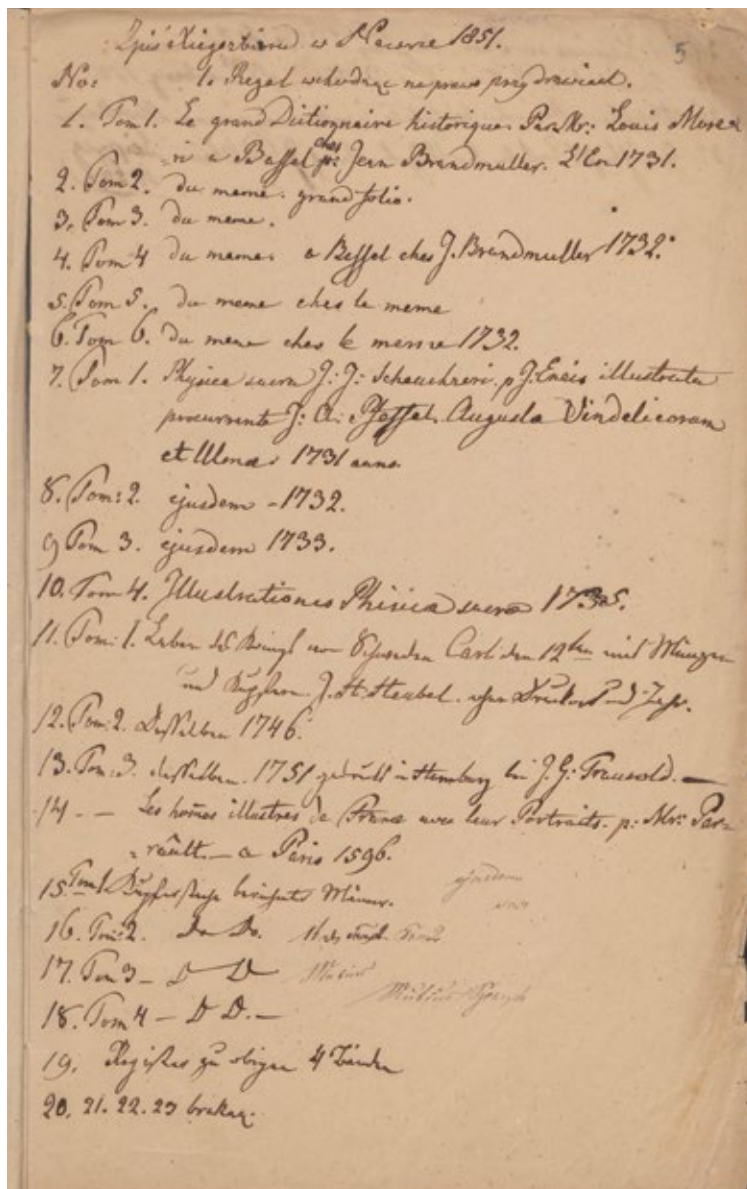 Spis Xięgozbioru w 1851.
5
No: 1. Regał wchodząc na prawo przy drzwiach.
1. Tom 1. Le grand Dictionnaire historique Par Mr: Louis More=
ri a Bassel ches pr: Jean Brandmuller. L'an 1731.
2. Tom 2. du meme. grand folio.
3. Tom 3. du meme.
4. Tom 4 du meme. a Bassel ches J. Brandmuller 1732.
5. Tom 5. du meme ches le meme
6. Tom 6. du meme ches le meme 1732.
7. Tom 1. Physica sacra J: J: Scheuchzeri. illustrata
procurrente J: A: Pfeffel. Augusta Vindelicorum
et Ulmae 1731 anno.
8. Tom: 2. ejusdem - 1732.
9 Tom 3. ejusdem 1733.
10. Tom 4. Illustrationes Phisica sacra 1735.
11. Tom: 1. Leben des Königs von Schweden Carl den 12ten mit Münzen
und Kupfern. J. H. Heubel. ohne Druckort und Jahr.
12. Tom: 2. Desselben 1746.
13. Tom: 3. desselben. 1751 gedruckt in Hamburg bei J. G: Trausold. —
14 - — Les homes illustres de France avec leur Portraits. p: Mr: Per=
=rault. — a Paris 1596.
15. Tom 1. Kupferstiche berühmter Männer. ejusdem
16. Tom: 2. Do Do.
17. Tom 3 — D D
18. Tom 4 — D D. —
19. Register zu obigen 4 Bänden
20. 21. 22. 23 brakuą.